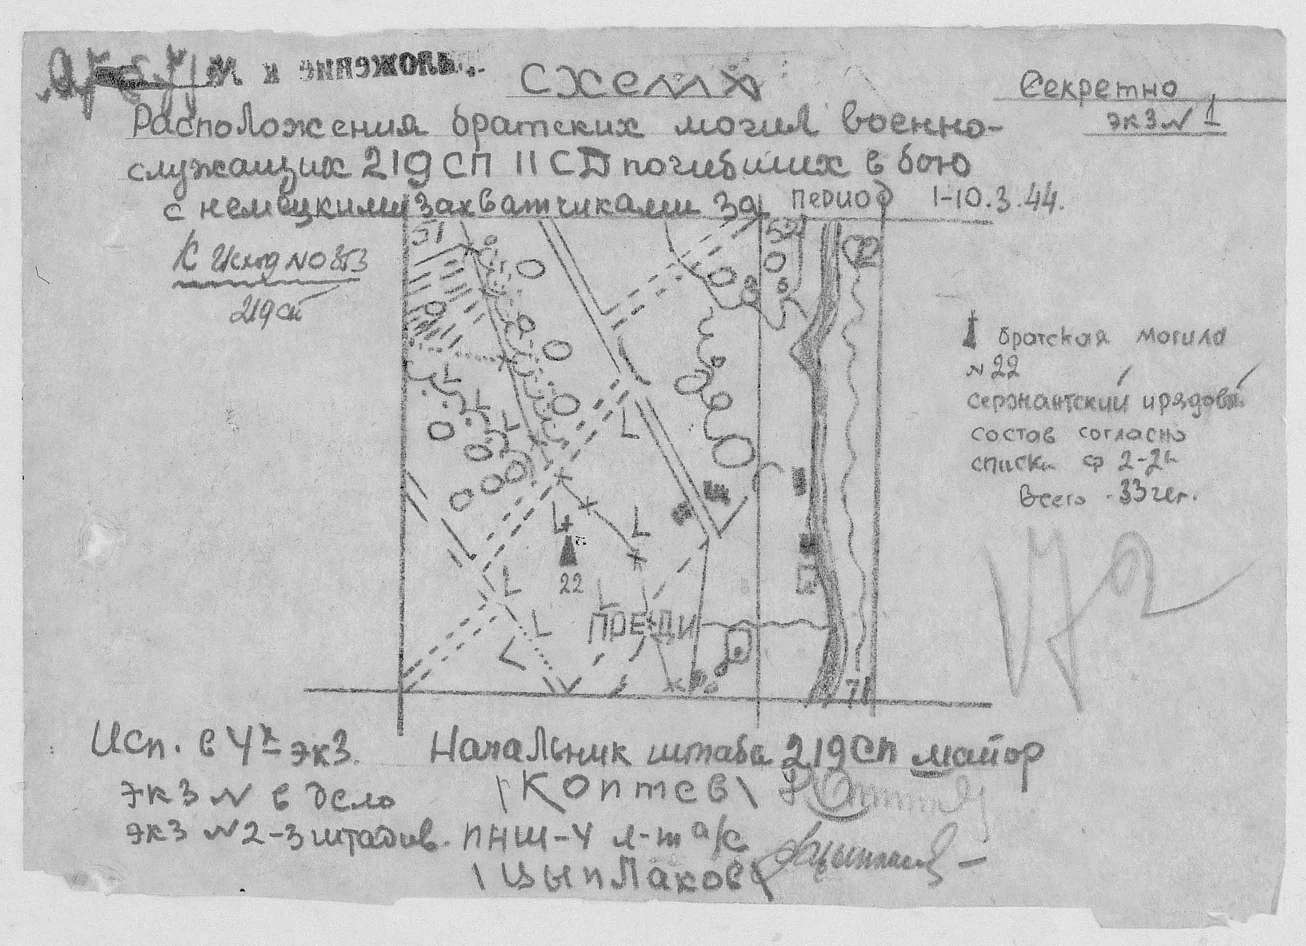 Приложение к
схема
Секретно
экз N 1
Расположения братских могил военно-
служащих 219 СП 11 СД погибших в бою
с немецкими захватчиками за период 1-10.3.44.
К Исход N 0853
219 сп
51
52
71
22
ПРЕДИ
братская могила
N 22
сержантский и рядовой
состав согласно
списка ф 2-2к
Всего - 33 чел.
Исп. в 4х экз.
экз N в дело
экз N 2-3 штадив.
Начальник штаба 219 СП майор
\Коптев\
ПНШ-4 л-т а/с
\Цыплаков\